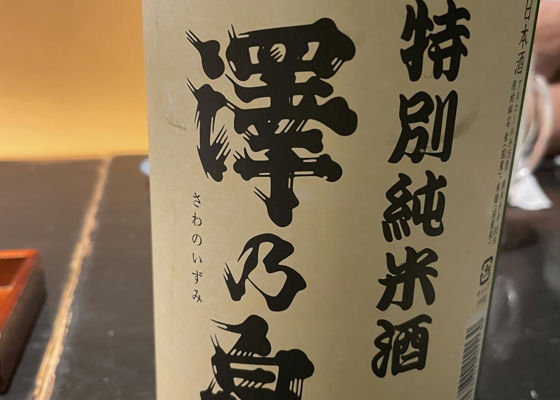 日本酒
特別純米酒
澤乃泉
さわのいずみ